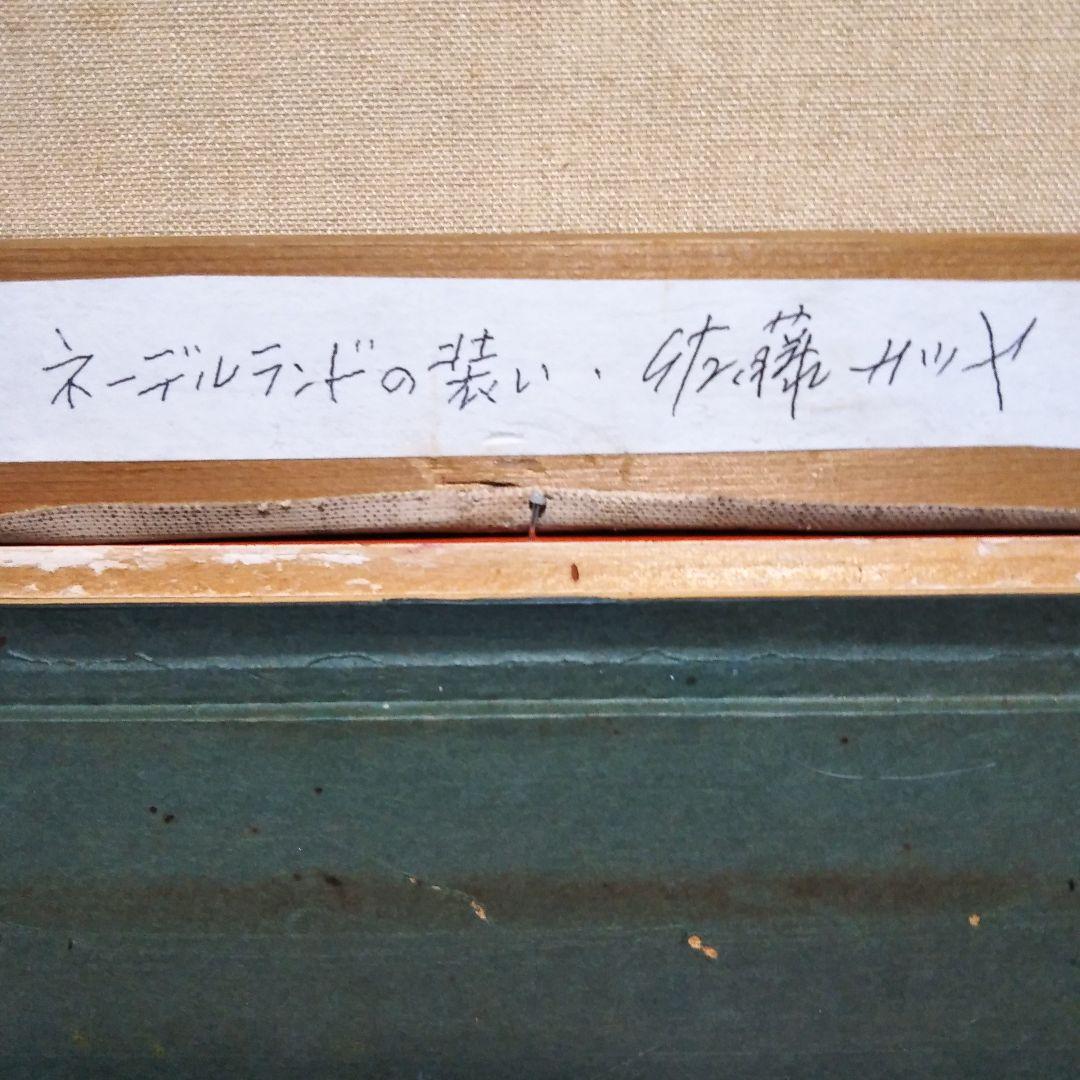 ネーデルランドの装い . 佐藤